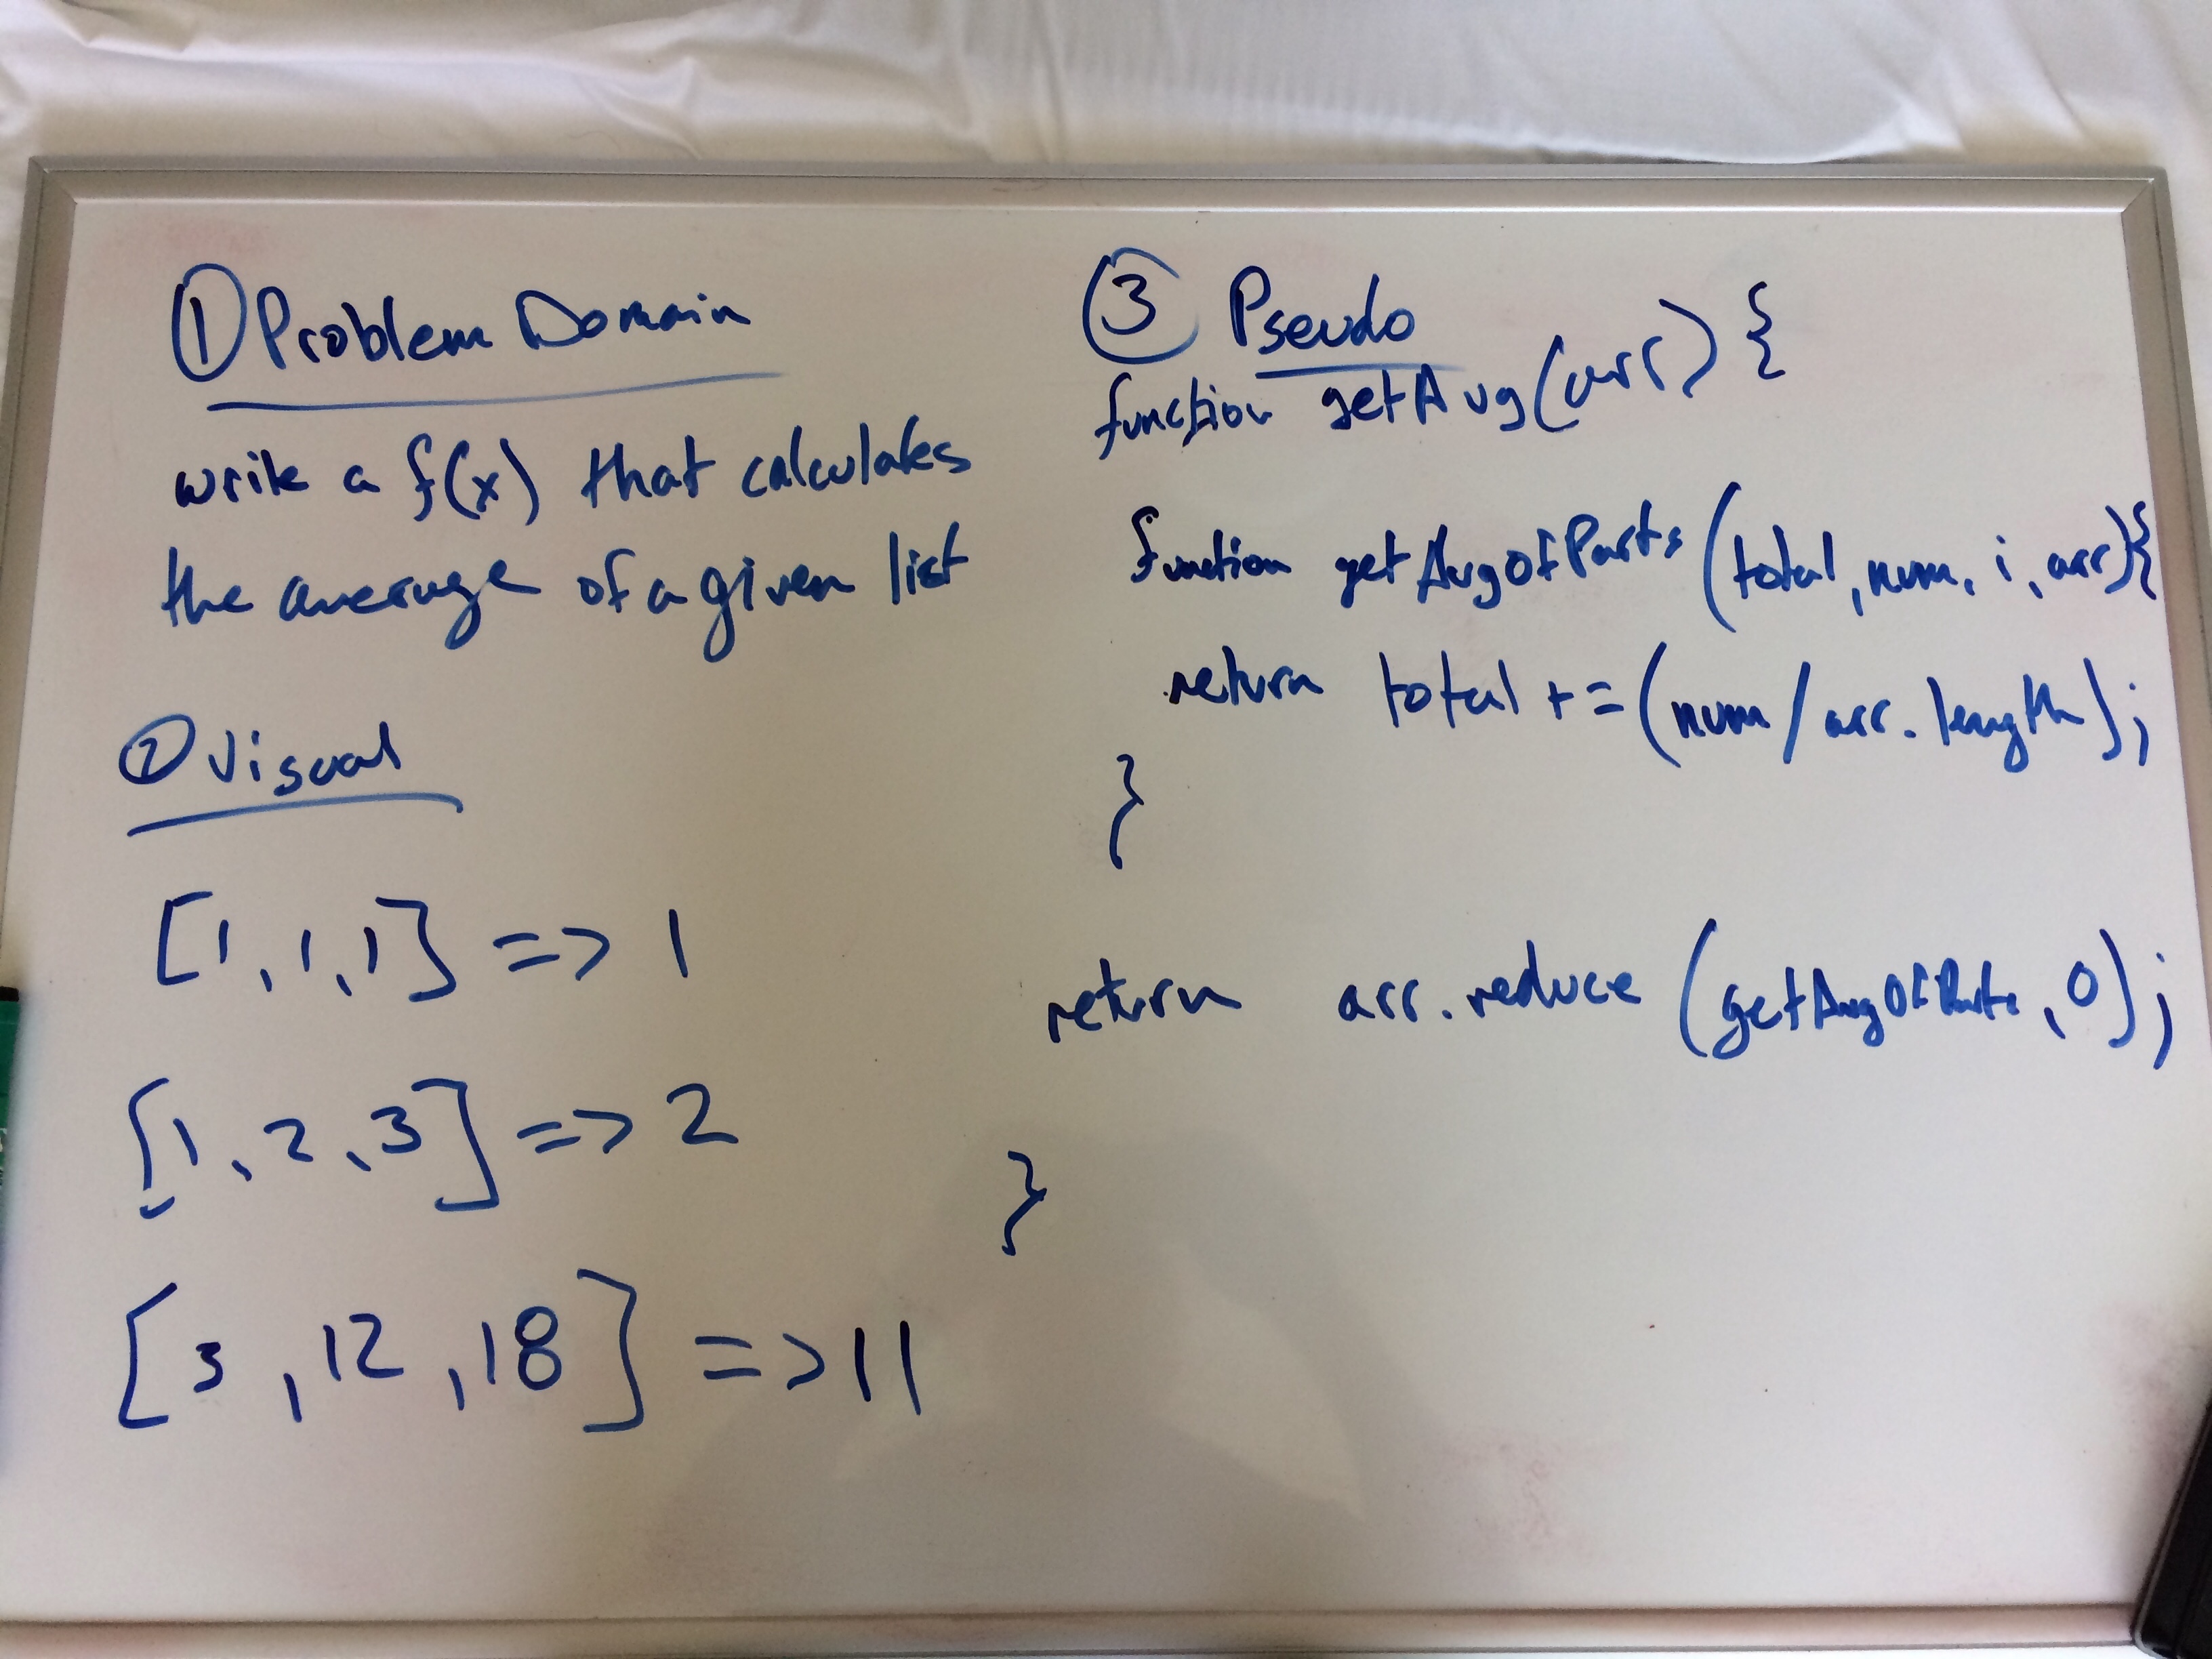 ① Problem Domain
write a f(x) that calculates
the average of a given list
② Visual
[1,1,1] => 1
[1,2,3] => 2
[3,12,18] => 11
③ Pseudo
function getAvg(arr) {
function getAvgOfParts(total, num, i, arr){
return total += (num/arr.length);
}
return arr.reduce (getAvgOfParts, 0);
}